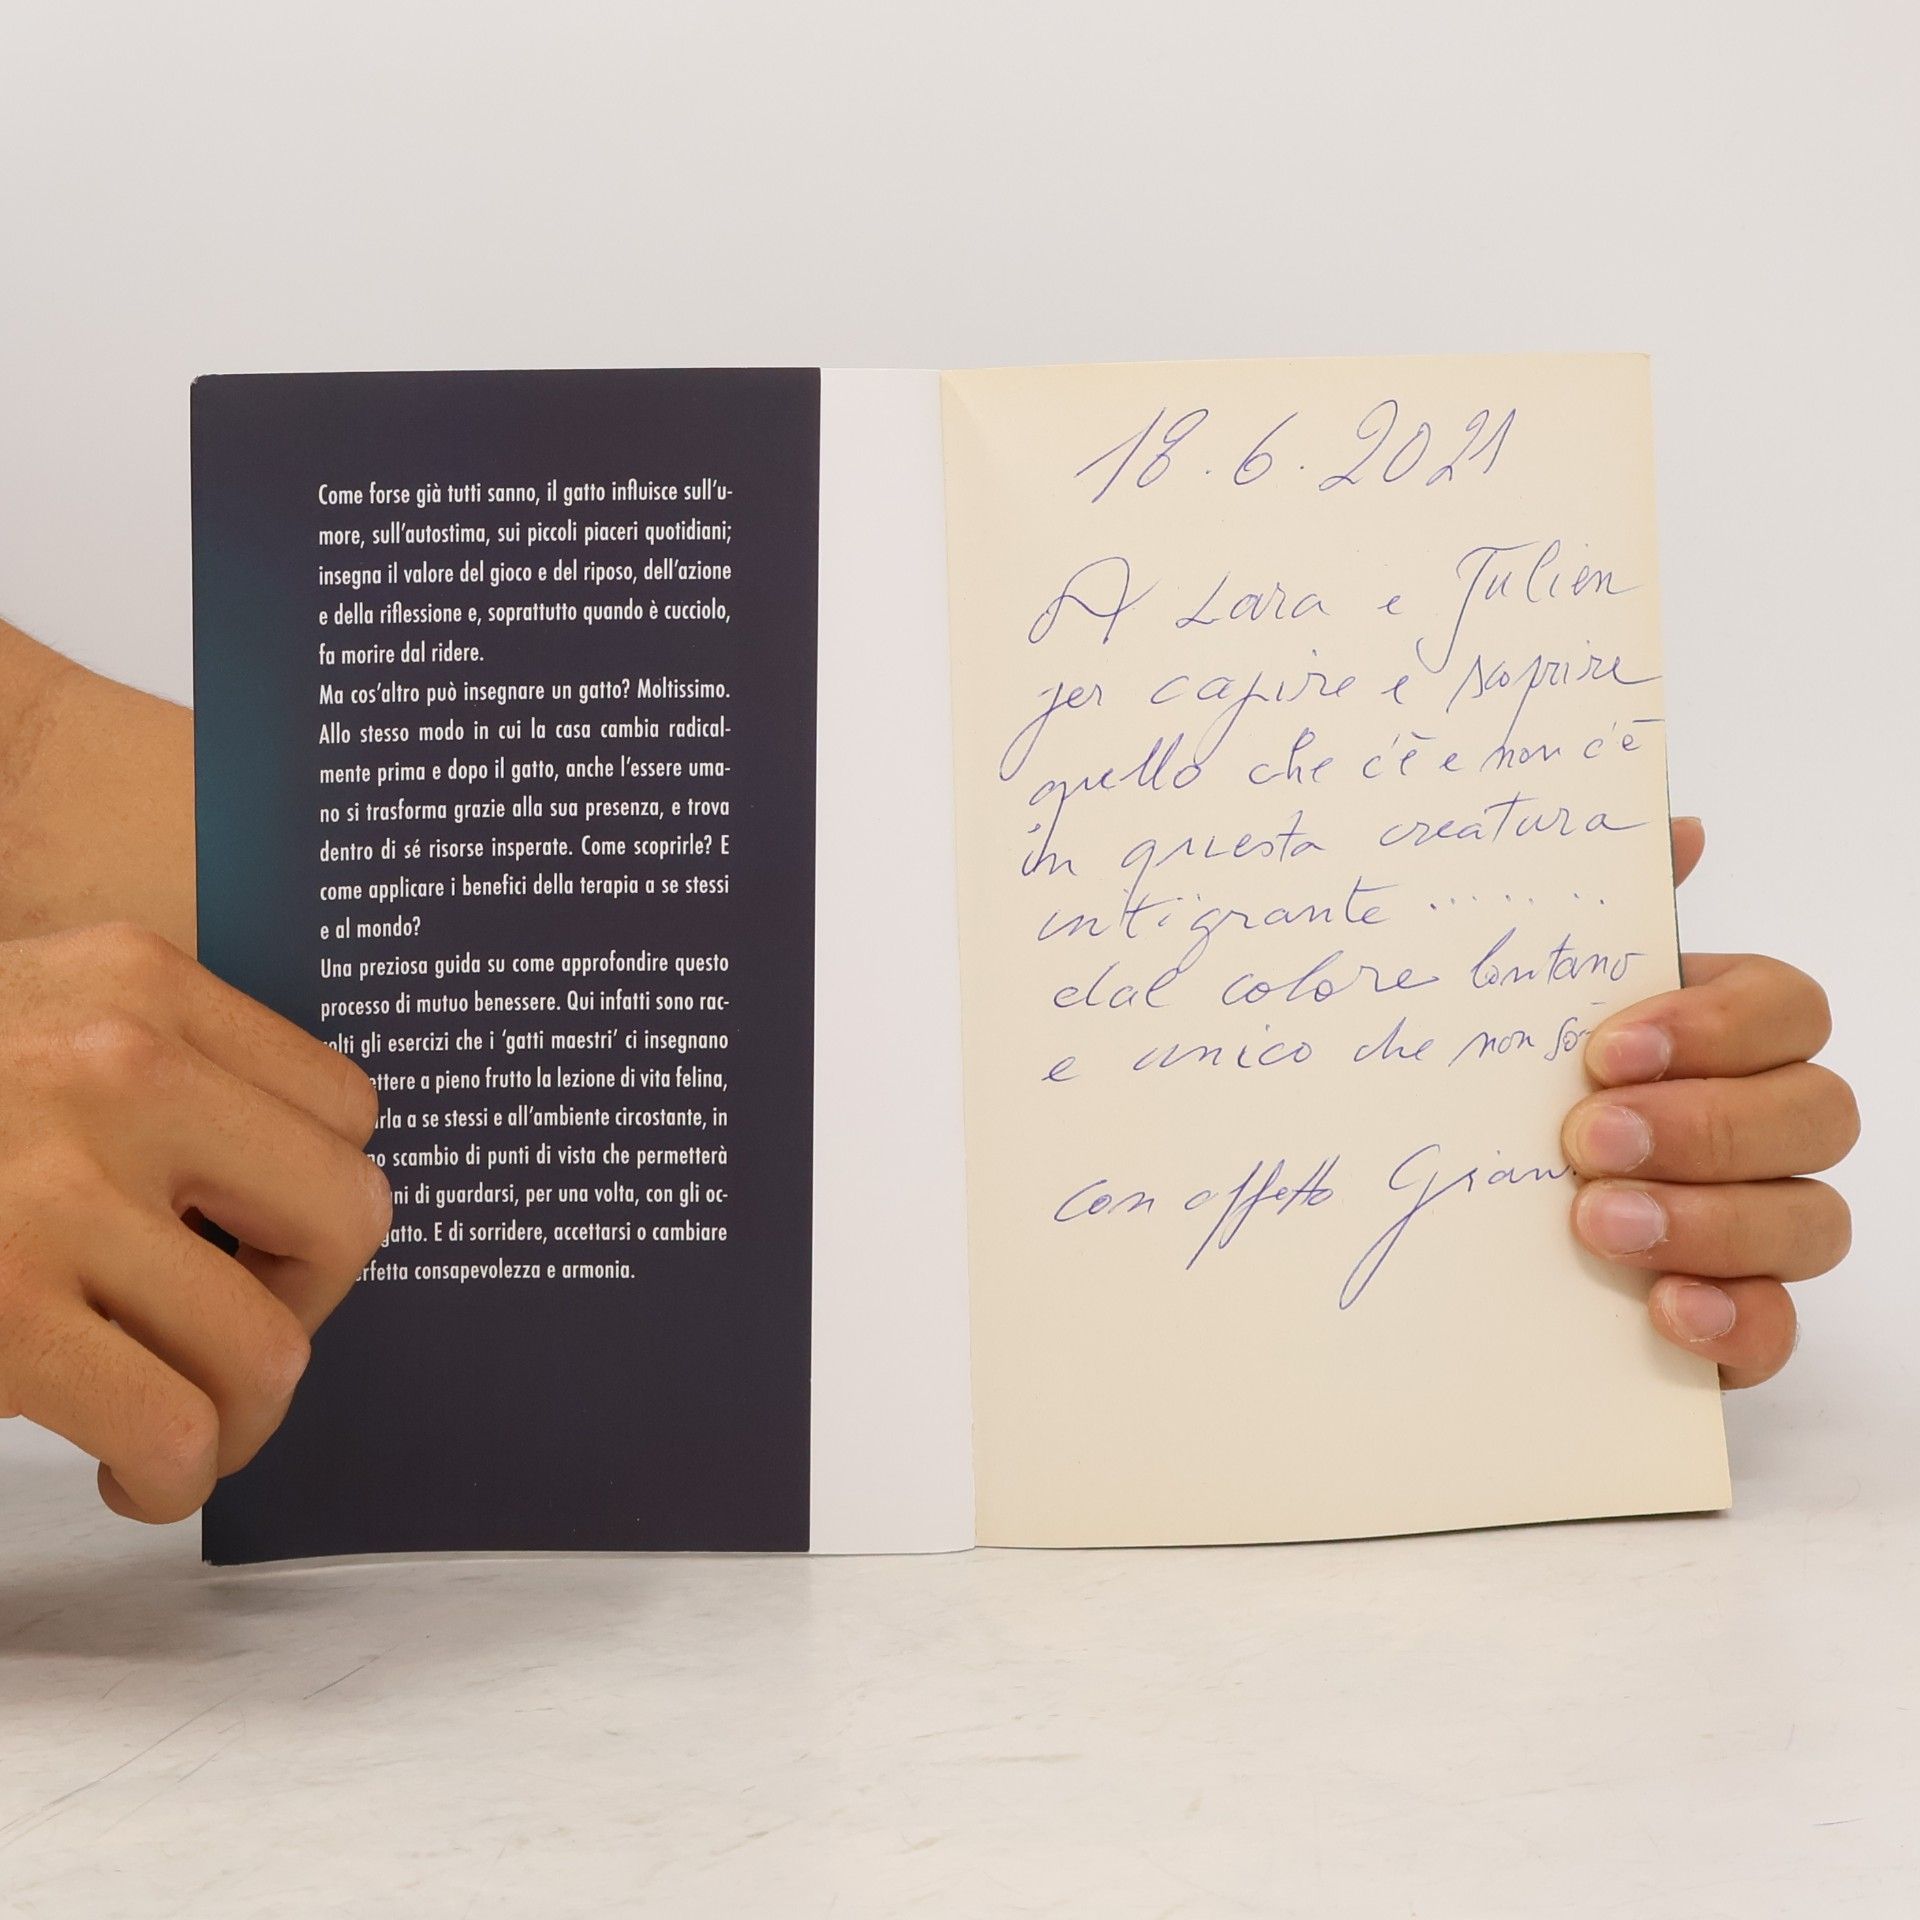 Come forse già tutti sanno, il gatto influisce sull'u-
more, sull'autostima, sui piccoli piaceri quotidiani;
insegna il valore del gioco e del riposo, dell'azione
e della riflessione e, soprattutto quando è cucciolo,
fa morire dal ridere.
Ma cos'altro può insegnare un gatto? Moltissimo.
Allo stesso modo in cui la casa cambia radical-
mente prima e dopo il gatto, anche l'essere uma-
no si trasforma grazie alla sua presenza, e trova
dentro di sé risorse insperate. Come scoprirle? E
come applicare i benefici della terapia a se stessi
e al mondo?
Una preziosa guida su come approfondire questo
processo di mutuo benessere. Qui infatti sono rac-
olti gli esercizi che i 'gatti maestri' ci insegnano
ettere a pieno frutto la lezione di vita felina,
rla a se stessi e all'ambiente circostante, in
no scambio di punti di vista che permetterà
ni di guardarsi, per una volta, con gli oc-
gatto. E di sorridere, accettarsi o cambiare
rfetta consapevolezza e armonia.
18.6.2021
A Lara e Julien
per capire e scoprire
quello che c'è e non c'è
in questa creatura
intigrante ........
dal colore lontano
e unico che non so
con affetto Gian